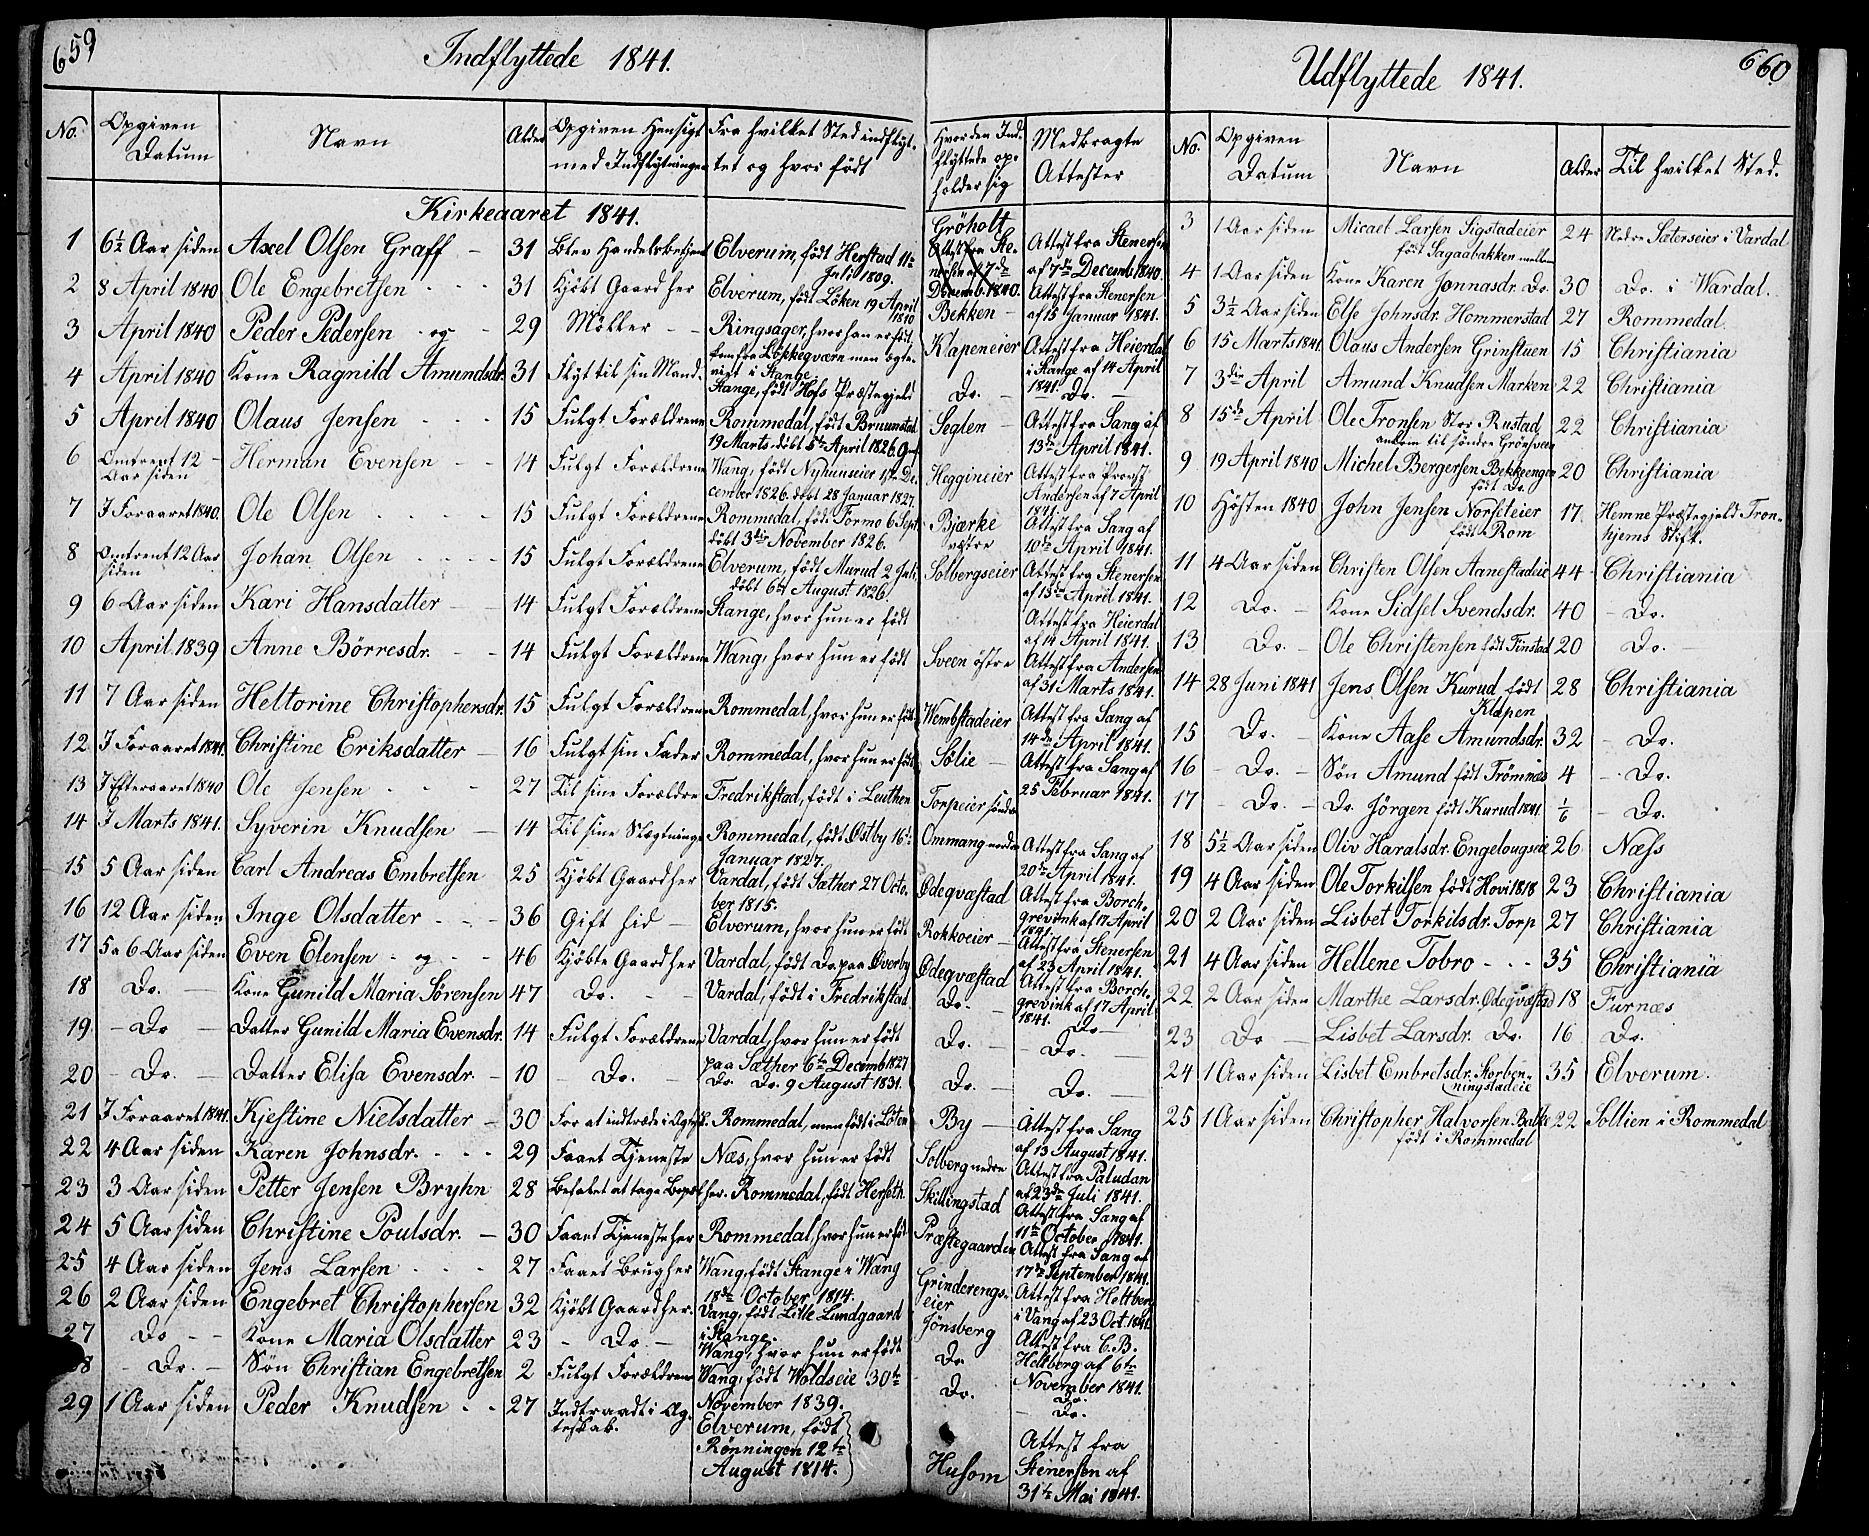 659
Indflyttede 1841.
No. Opgiven Datum Navn Alder Opgiven Hensigt med Indflytningen Fra hvilket Sted indflyttet og hvor födt Hvor den Indflyttede opholder sig Medbragte Attester
Kirkeaaret 1841.
1 6½ Aar siden Axel Olsen Graff - 31 Blev Handelsbetjent Elverum, födt Herstad 11te Juli 1809. Gröholt Attest fra Stenersen af 7de Decemb. 1840.
2 8 April 1840 Ole Engebretsen 31 Kjöbt Gaard her Elverum, födt Löken 19 April 1810 Bekken - Attest fra Stenersen af 15 Januar 1841.
3 April 1840 Peder Pedersen og 29 Møller Ringsager, hvor han er födt, kom fra Lökkeqværn men ægteviet i Stange Klapeneier Attest fra Heierdal i Stange af 14 April 1841.
4 April 1840 Kone Ragnild Amundsdr. 31 Flyt til sin Mand. Stange, födt Hofs Præstegjeld Do. Do.
5 April 1840 Olaus Jensen 15 Fulgt Forældrene Rommedal, födt 19 Marts döbt 5te April 1826. Seglen - Attest fra Sang af 13de April 1841.
6 Omtrent 12 Aar siden Herman Evensen 14 Fulgt Forældrene Wang, födt Nyhuuseier 1ste December 1826. döbt 28 Januar 1827. Heggineier Attest fra Provst Andersen af 7 April 1841.
7 I Foraaret 1840. Ole Olsen 15 Fulgt Forældrene Rommedal, födt Formo 6 Sept. döbt 3die November 1826. Bjærke vestre Attest fra Sang af 10de April 1841.
8 Omtrent 12 Aar siden Johan Olsen 15 Fulgt Forældrene Elverum, födt Murud 2 Juli, döbt 6te August 1826. Solbergseier Attest fra Stenersen af 13de April 1841.
9 6 Aar siden Kari Hansdatter 14 Fulgt Forældrene Stange, hvor hun er födt Attest fra Heierdal af 14 April 1841.
10 April 1839 Anne Börresdr. 14 Fulgt Forældrene Wang, hvor hun er födt Sveen östre Attest fra Andersen af 31 Marts 1841.
11 7 Aar siden Heltorine Christophersdr. 15 Fulgt Forældrene Rommedal, hvor hun er födt Wembstadeier Attest fra Sang af 14de April 1841.
12 I Foraaret 1841. Christine Eriksdatter 16 Fulgt sin Fader Rommedal, hvor hun er födt Sølie - Attest fra Sang af 25 Februar 1841.
13 I Efteraaret 1840 Ole Jensen 27 Til sine Forældre Fredrikstad, födt i Leuthen Torpeier söndre
14 I Marts 1841. Syverin Knudsen 14 Til sine Slægtninge Rommedal, födt Østby 16de Januar 1827. Ommang nedre Attest fra Sang af 20de April 1841.
15 5 Aar siden Carl Andreas Embretsen 25 Kjöbt Gaard her Vardal, födt Sæther 27 October 1815. Ødeqvæstad Attest fra Borchgrevink af 17 April 1841.
16 12 Aar siden Inge Olsdatter 36 Gift hid Elverum, hvor hun er födt Rokkoeier Attest fra Stenersen af 23 April 1841.
17 5 a 6 Aar siden Even Elensen - og 46 Kjöbte Gaard her Vardal, födt Do. paa Øverby Ødeqvæstad Attest fra Borchgrevink af 17 April 1841.
18 Do. Kone Gunild Maria Sörensen 47 Do. Vardal, födt i Fredrikstad Do. Do.
19 Do Datter Gunild Maria Evensdr. 14 Fulgt Forældrene Vardal, hvor hun er födt paa Sæther 6te Decemb. 1827 Do. Do.
20 Do. Datter Elisa Evensdr. 10 Do. Do. Do. 9 August 1831. Do. Do.
21 I Foraaret 1841. Kjestine Nielsdatter 30 For at indtræde i Rommedal, men födt i Löten By Attest fra Sang af 13 August 1841.
22 4 Aar siden Karen Johnsdr. 29 Faaet Tjeneste Næs, hvor hun er födt Solberg nedre Attest fra Paludan af 23de Juli 1841.
23 3 Aar siden Petter Jensen Bryhn 28 at tage her. Rommedal, födt Herseth. Skillingstad Attest fra Sang af 11te October 1841.
24 5 Aar siden Christine Poulsdr. 30 Faaet Tjeneste her Rommedal hvor hun er födt Præstegaarden Attest fra Sang af 17de September 1841.
25 4 Aar siden Jens Larsen 27 Faaet Brug her Wang, födt Stange i Wang 18de October 1814. Grinderengseier Attest fra Heltberg i Vang af 23 Oct. 1841
26 2 Aar siden Engebret Christophersen 32 Kjöbt Gaard her. Vang, födt Lille Lundgaard i Stange. Jönsberg Attest fra C.B. Heltberg af 6te November 1841.
27 Do Kone Maria Olsdatter 23 Do. Wang, hvor hun er födt Do Do.
28 Do. Søn Christian Engebretsen 2 Fulgt Forældrene Wang, födt Woldseie 30te November 1839. Do. Do.
29 1 Aar siden Peder Knudsen 27 Indtraadt i Ægteskab. Elverum, födt Rönningen 12te August 1814. Husom Attest fra Stenersen af 31te Mai 1841.
660
Udflyttede 1841.
No. Opgiven Datum Navn Alder Til hvilket Sted.
3 1 Aar siden Micael Larsen Sigstadeier födt Sagaabakken 24 Nedre Sæterseier i Vardal
4 1 Aar siden Kone Karen Jonnasdr. Do. 30 Do. i Wardal.
5 3½ Aar siden Else Johnsdr. Hommerstad 27 Rommedal.
6 15 Marts 1841. Olaus Andersen Grinstuen 15 Christiania
7 3die April Amund Knudsen Marken 22 Christiania
8 15de April Ole Tronsen Stor Rustad ankom til söndre Grönsveen 22 Christiania
9 19 April 1840 Michel Bergersen Bekkeengen födt Do. 20 Christiania
10 Hösten 1840 John Jensen Norseteier födt Rom 17. Hemne Præstegjeld Tronhjems Stift.
11 4 Aar siden Christen Olsen Aanestadeie 44 Christiania
12 Do. Kone Sidsel Svendsdr. 40 Do.
13 Do. Ole Christensen födt Finstad 20 Do.
14 28 Juni 1841 Jens Olsen Kurud födt Klapen 28 Christiania
15 Do. Kone Aase Amundsdr. 32 Do.
16 Do. Søn Amund födt Trömnæs 4 Do.
17 Do. Do. Jörgen födt Kurud 1841. 1/6 Do.
18 5½ Aar siden Oliv Haralsdr. Engelaugseie 26 Næss
19 4 Aar siden Ole Torkilsen födt Hovi 1818 23 Christiania
20 2 Aar siden Lisbet Torkilsdr. Torp 27 Christiania
21 4 Aar siden Hellene Tobro 35 Christiania
22 2 Aar siden Marthe Larsdr. Ødeqvæstad 18 Furnæs
23 Do Lisbet Larsdr. Do. 16 Do.
24 1 Aar siden Lisbet Embretsdr. 35 Elverum.
25 1 Aar siden Christopher Halvorsen Bakke födt i Rommedal 22 Sollien i Rommedal